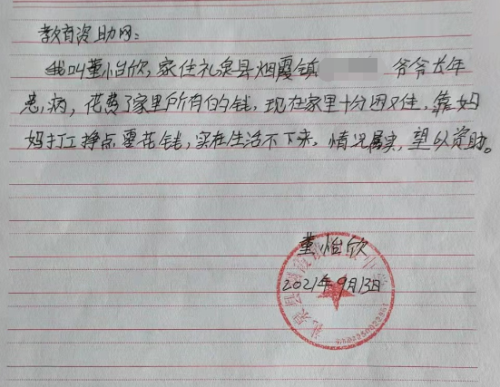 教育资助网：
我叫董怡欣，家住礼泉县烟霞镇 爷爷长年
患病，花费了家里所有的钱，现在家里十分困难，靠妈
妈打工挣点零花钱，实在生活不下来，情况属实，望以资助。
董怡欣
2021年9月13日